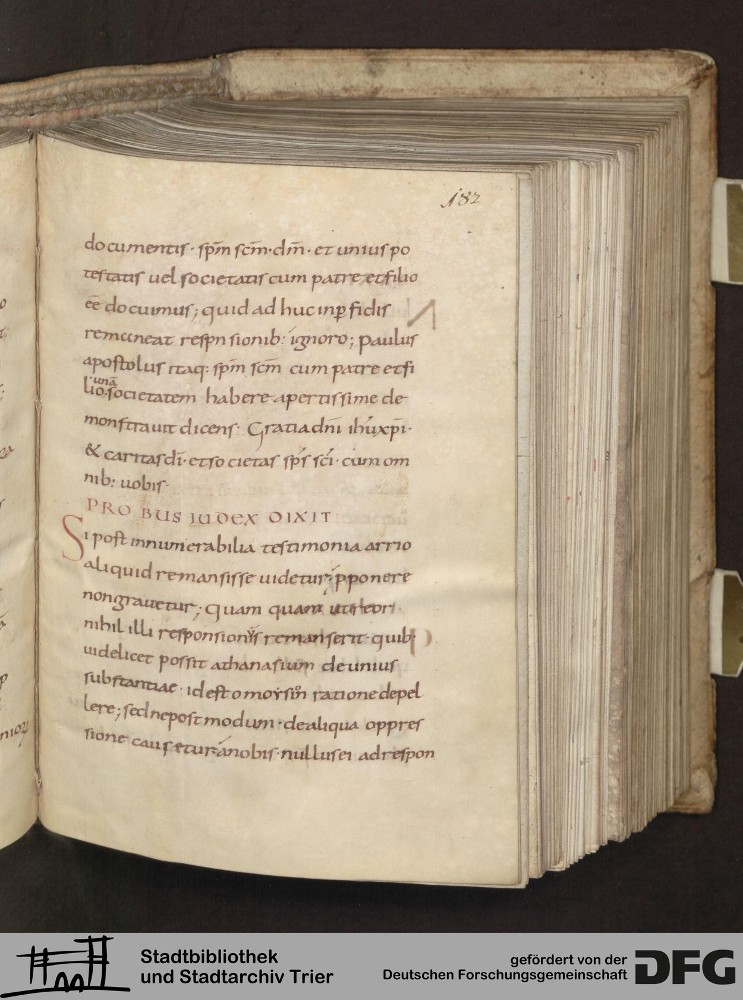 182
documentis · sp̄m sc̄m · dm̄ · et unius po
testatis uel societatis cum patre et filio
ēē docuimus; quid ad huc inp̱ fidis
remaneat respnsionib: ignoro; paulus
apostolus itaq: sp̄m sc̄m cum patre et fi
lio · unā societatem habere apertissime de
monstrauit dicens · Gratia dn̄i ihū xp̄i ·
& caritas dī · et societas sp̄s sc̄i · cum om
nib: uobis ·
PROBUS IUDEX DIXIT
Si post innumerabilia testimonia arrio
aliquid remansisse uidetur; pponere
non grauetur; Quam quam
nihil illi responsionis remanserit · quib;
uidelicet possit athanasium de unius
substantiae · id est omoysin ratione depel
lere; sed ne postmodum · de aliqua oppres
sione causetur a nobis · nullus ei ad respon
Stadtbibliothek
und Stadtarchiv Trier
gefördert von der
Deutschen Forschungsgemeinschaft
DFG